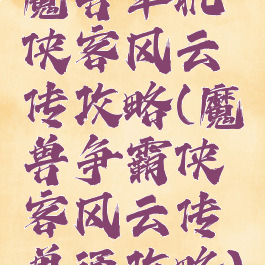 魔兽单机
侠客风云
传攻略(魔
兽争霸侠
客风云传
攻略)